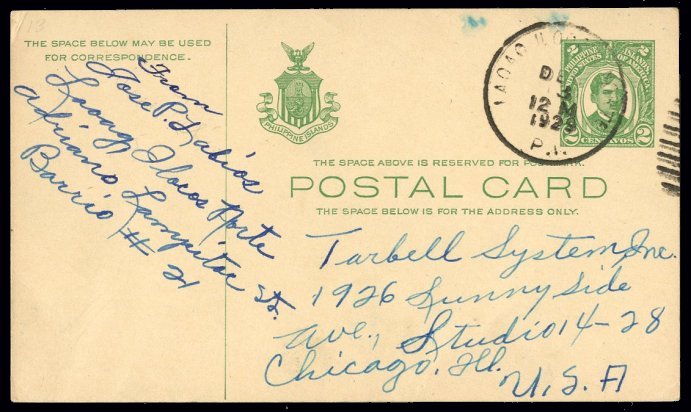 THE SPACE BELOW MAY BE USED
FOR CORRESPONDENCE.
From
Jose P. Labios
Laoag Ilocos Norte
Adriano Lampitoc St.
Barrio # 21
PHILIPPINE ISLANDS
LAOAG ILOCOS
DE
3
12 M
1923
P.I.
2
PHILIPPINE ISLANDS
UNITED STATES OF AMERICA
2 CENTAVOS 2
THE SPACE ABOVE IS RESERVED FOR POSTMARK.
POSTAL CARD
THE SPACE BELOW IS FOR THE ADDRESS ONLY.
Tarbell System, Inc.
1926 Sunny Side
Ave., Studio 14-28
Chicago, Ill.
U.S.A